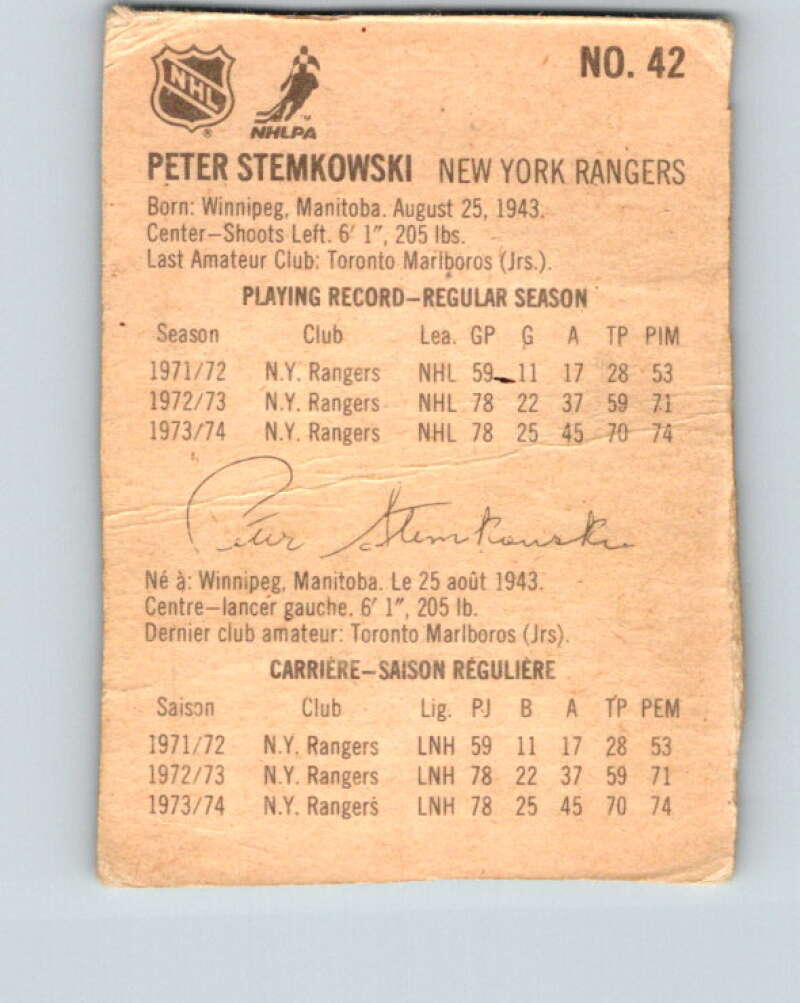 NHL
NHLPA
NO. 42
PETER STEMKOWSKI NEW YORK RANGERS
Born: Winnipeg, Manitoba. August 25, 1943.
Center—Shoots Left. 6′ 1″, 205 lbs.
Last Amateur Club: Toronto Marlboros (Jrs.).
PLAYING RECORD—REGULAR SEASON
Season Club Lea. GP G A TP PIM
1971/72 N.Y. Rangers NHL 59 11 17 28 53
1972/73 N.Y. Rangers NHL 78 22 37 59 71
1973/74 N.Y. Rangers NHL 78 25 45 70 74
Peter Stemkowski
Né à: Winnipeg, Manitoba. Le 25 août 1943.
Centre—lancer gauche. 6′ 1″, 205 lb.
Dernier club amateur: Toronto Marlboros (Jrs).
CARRIÈRE—SAISON RÉGULIÈRE
Saison Club Lig. PJ B A TP PEM
1971/72 N.Y. Rangers LNH 59 11 17 28 53
1972/73 N.Y. Rangers LNH 78 22 37 59 71
1973/74 N.Y. Rangers LNH 78 25 45 70 74